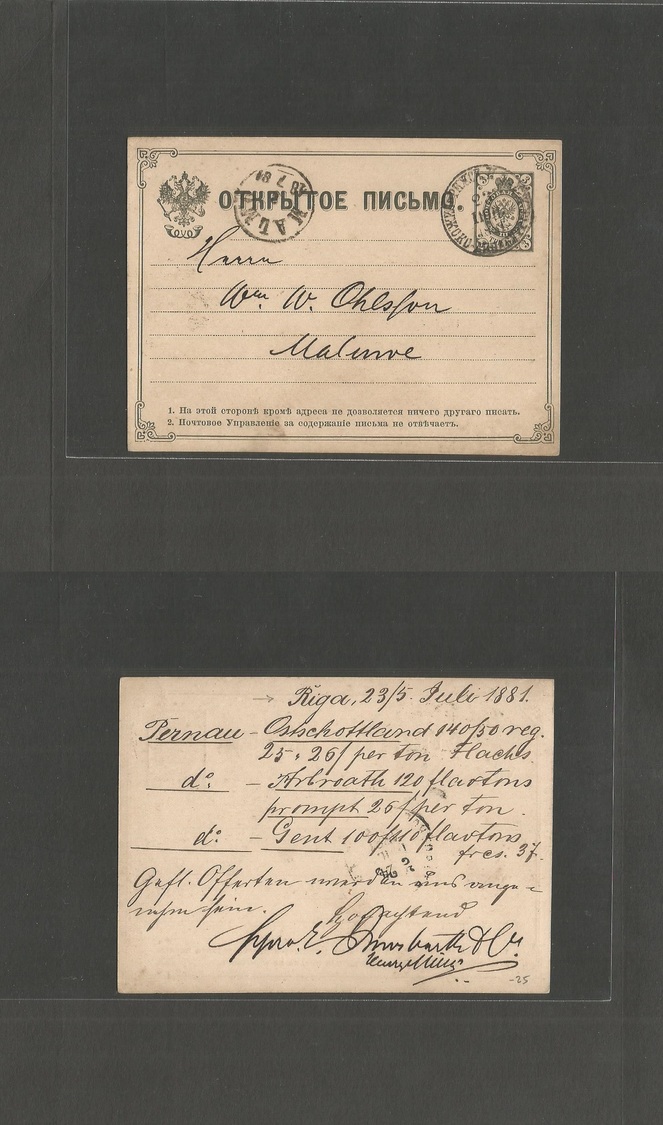 ОТКРЫТОЕ ПИСЬМО
Herrn
Wm W. Ohlsson
Malmoe
1. На этой сторонѣ кромѣ адреса не дозволяется ничего другаго писать.
2. Почтовое Управленіе за содержаніе письма не отвѣчаетъ.
Riga, 23/5. Juli 1881.
Pernau - Ostschottland 140/50 reg.
25 . 26/ per ton Flachs
do: - Arbroath 120 flaxtons
prompt 26/ per ton.
do: - Gent 100/110 flaxtons
frcs. 37.
Gefl. Offerten werden uns ange=
nehm sein. Hochachtend
& Co.
-25